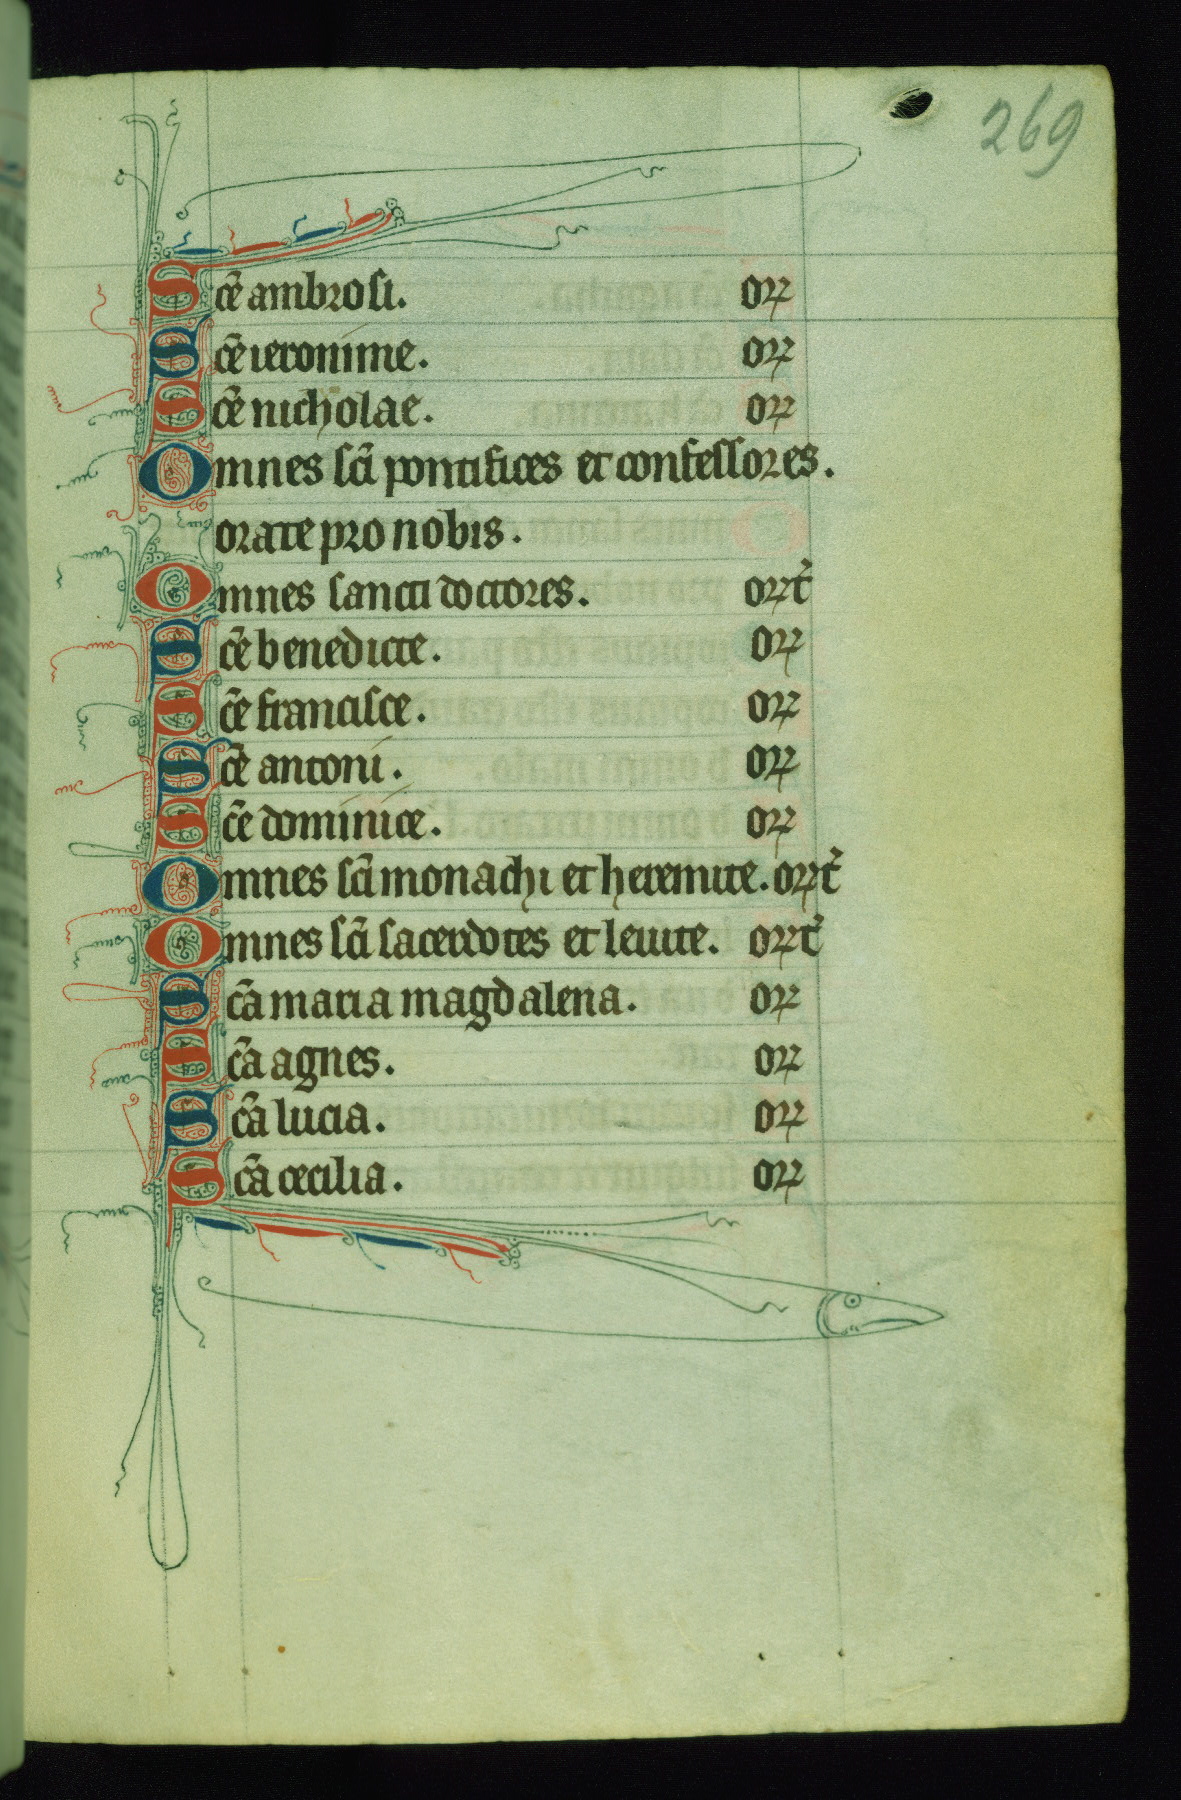 269
Sc̄e ambrosi. oꝝ
Sc̄e ieronime. oꝝ
Sc̄e nicholae. oꝝ
Omnes sc̄i pontifices et confessores.
orate pro nobis.
Omnes sancti doctores. oꝝt̉
Sc̄e benedicte. oꝝ
Sc̄e francisce. oꝝ
Sc̄e antoni. oꝝ
Sc̄e dominice. oꝝ
Omnes sc̄i monachi et heremite. oꝝt̉
Omnes sc̄i sacerdotes et leuite. oꝝt̉
Sc̄a maria magdalena. oꝝ
Sc̄a agnes. oꝝ
Sc̄a lucia. oꝝ
Sc̄a cecilia. oꝝ